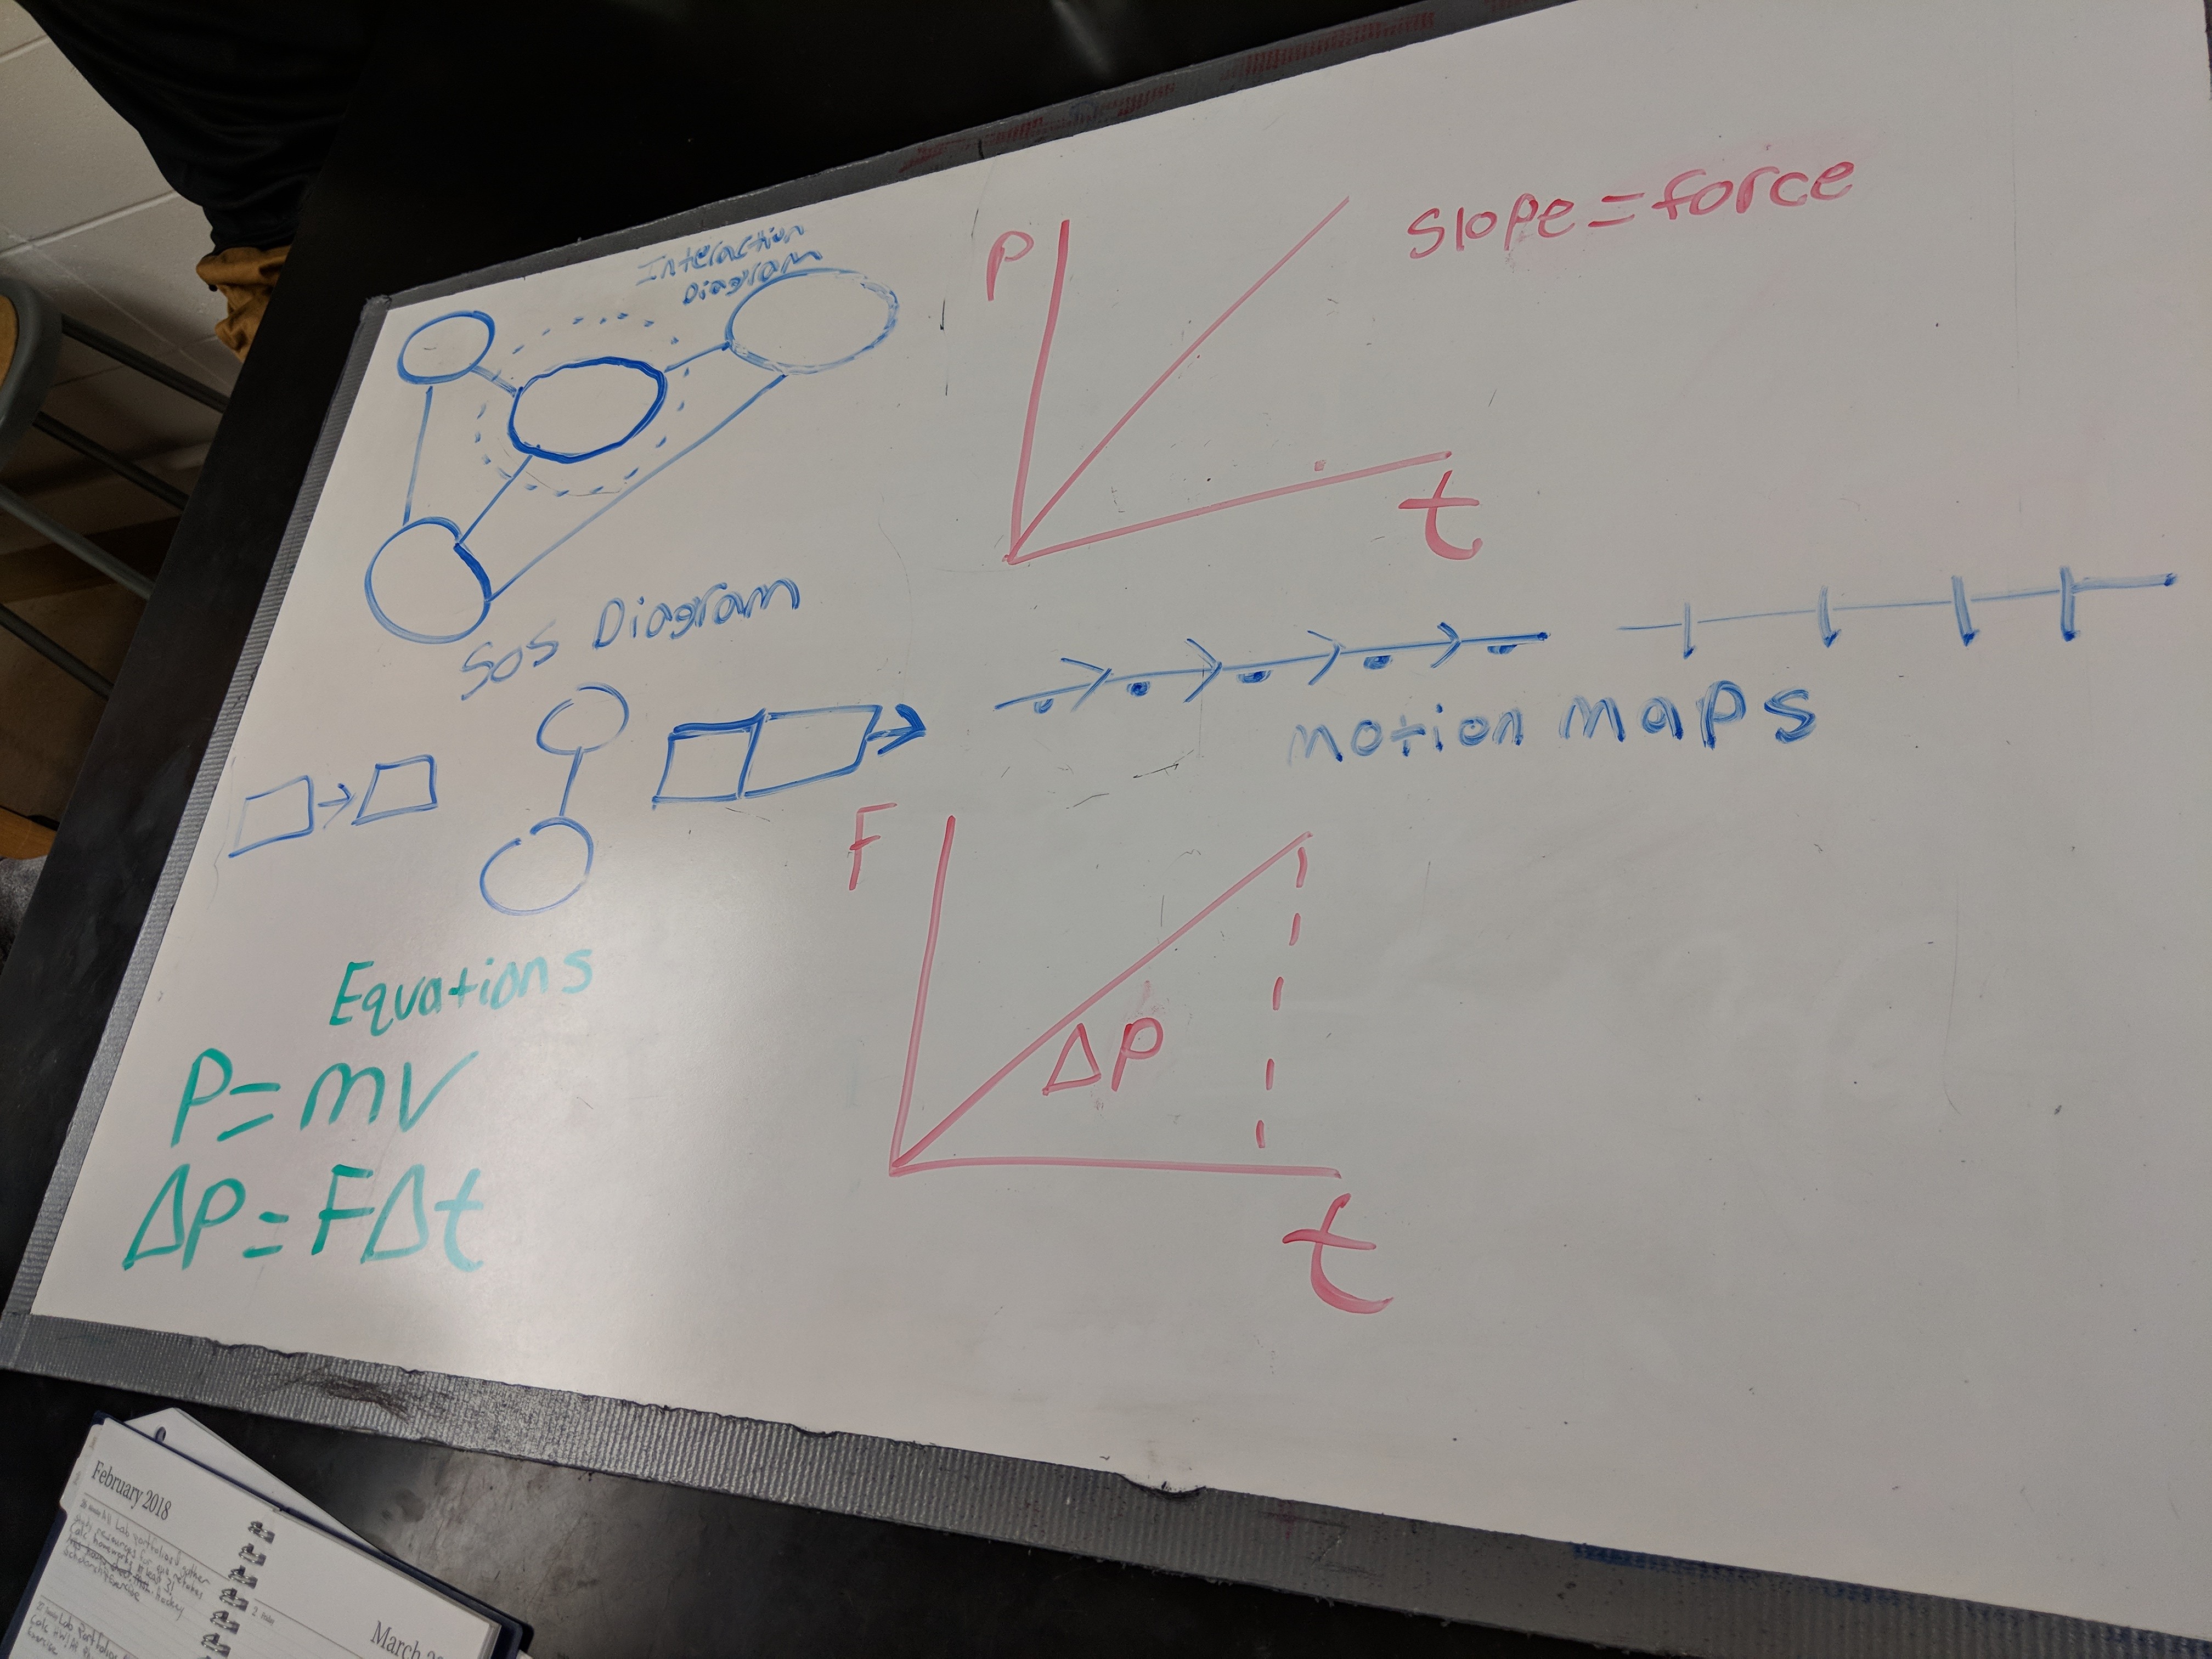 Interaction
Diagram
P
slope = force
t
SOS Diagram
motion maps
F
ΔP
t
Equations
P = mv
ΔP = FΔt
February 2018
March